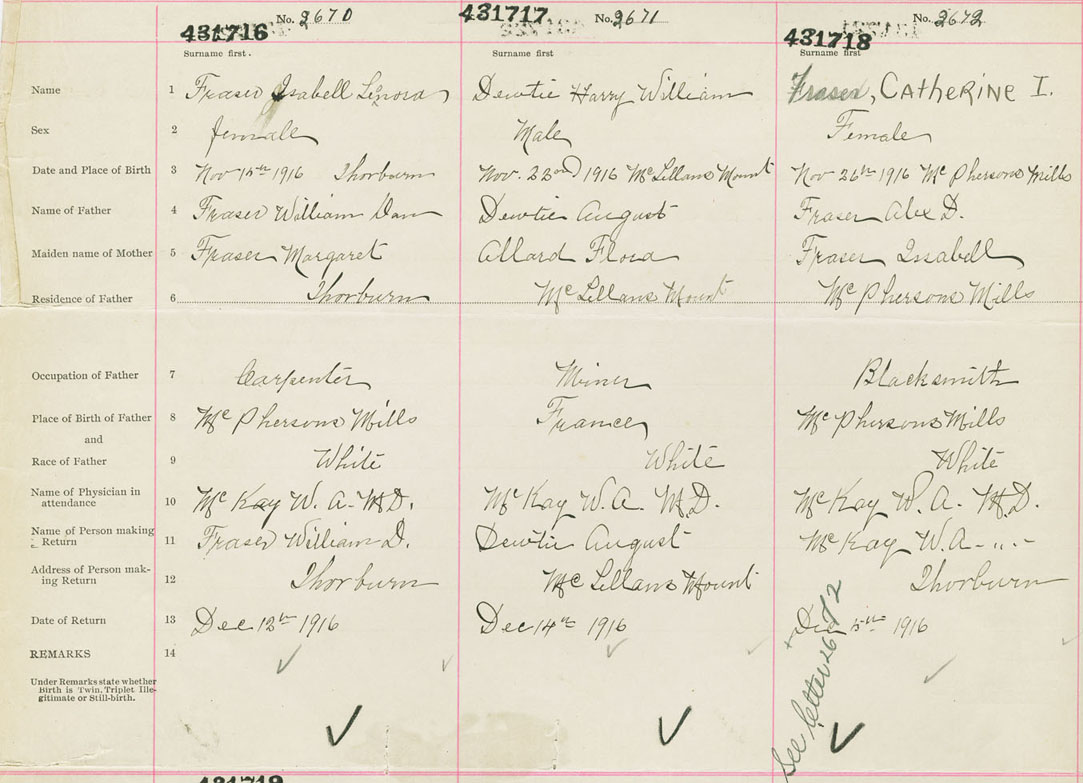 431716 No. 2670 431717 No. 2671 431718 No. 2672
Surname first. Surname first Surname first
Name 1 Fraser Isabell Lenora Dewtie Harry William Fraser, CATHERINE I.
Sex 2 female Male Female
Date and Place of Birth 3 Nov 15th 1916 Thorburn Nov. 22nd 1916 McLellans Mount Nov 26th 1916 McPhersons Mills
Name of Father 4 Fraser William Dan Dewtie August Fraser Alex D.
Maiden name of Mother 5 Fraser Margaret Allard Flora Fraser Issabell
Residence of Father 6 Thorburn McLellans Mount McPhersons Mills
Occupation of Father 7 Carpenter Miner Blacksmith
Place of Birth of Father 8 McPhersons Mills France McPhersons Mills
and
Race of Father 9 White White White
Name of Physician in
attendance 10 McKay W. A. M.D. McKay W. A. M.D. McKay W. A. M.D.
Name of Person making
Return 11 Fraser William D. Dewtie August McKay W. A - " -
Address of Person mak-
ing Return 12 Thorburn McLellans Mount Thorburn
Date of Return 13 Dec 12th 1916 Dec 14th 1916 Dec 15th 1916
REMARKS 14
Under Remarks state whether
Birth is Twin, Triplet, Ille-
gitimate or Still-birth.
See letter 2672
431719